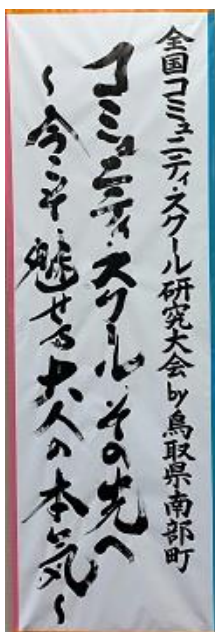 全国コミュニティ・スクール研究大会by鳥取県南部町
コミュニティ・スクール、その先へ
～今こそ、魅せる大人の本気～